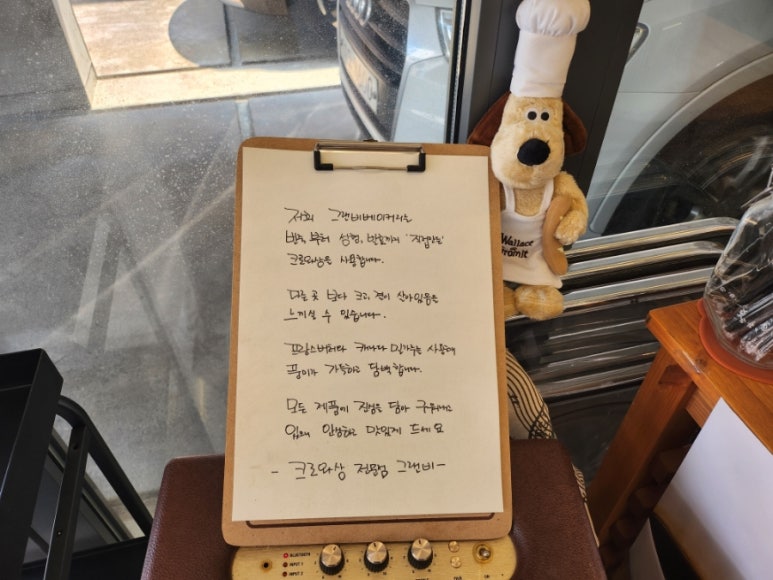 저희 그랜비베이커리는
반죽부터 성형, 발효까지 '직접만든'
크로와상을 사용합니다.
다른 곳 보다 크고, 결이 살아있음을
느끼실 수 있습니다.
프랑스버터와 캐나다 밀가루를 사용해
풍미가 가득하고 담백합니다.
모든 제품에 진심을 담아 구워내고
있으니 안심하고 맛있게 드세요
- 크로와상 전문점 그랜비 -
Wallace
Gromit
BLUETOOTH
INPUT 1
INPUT 2